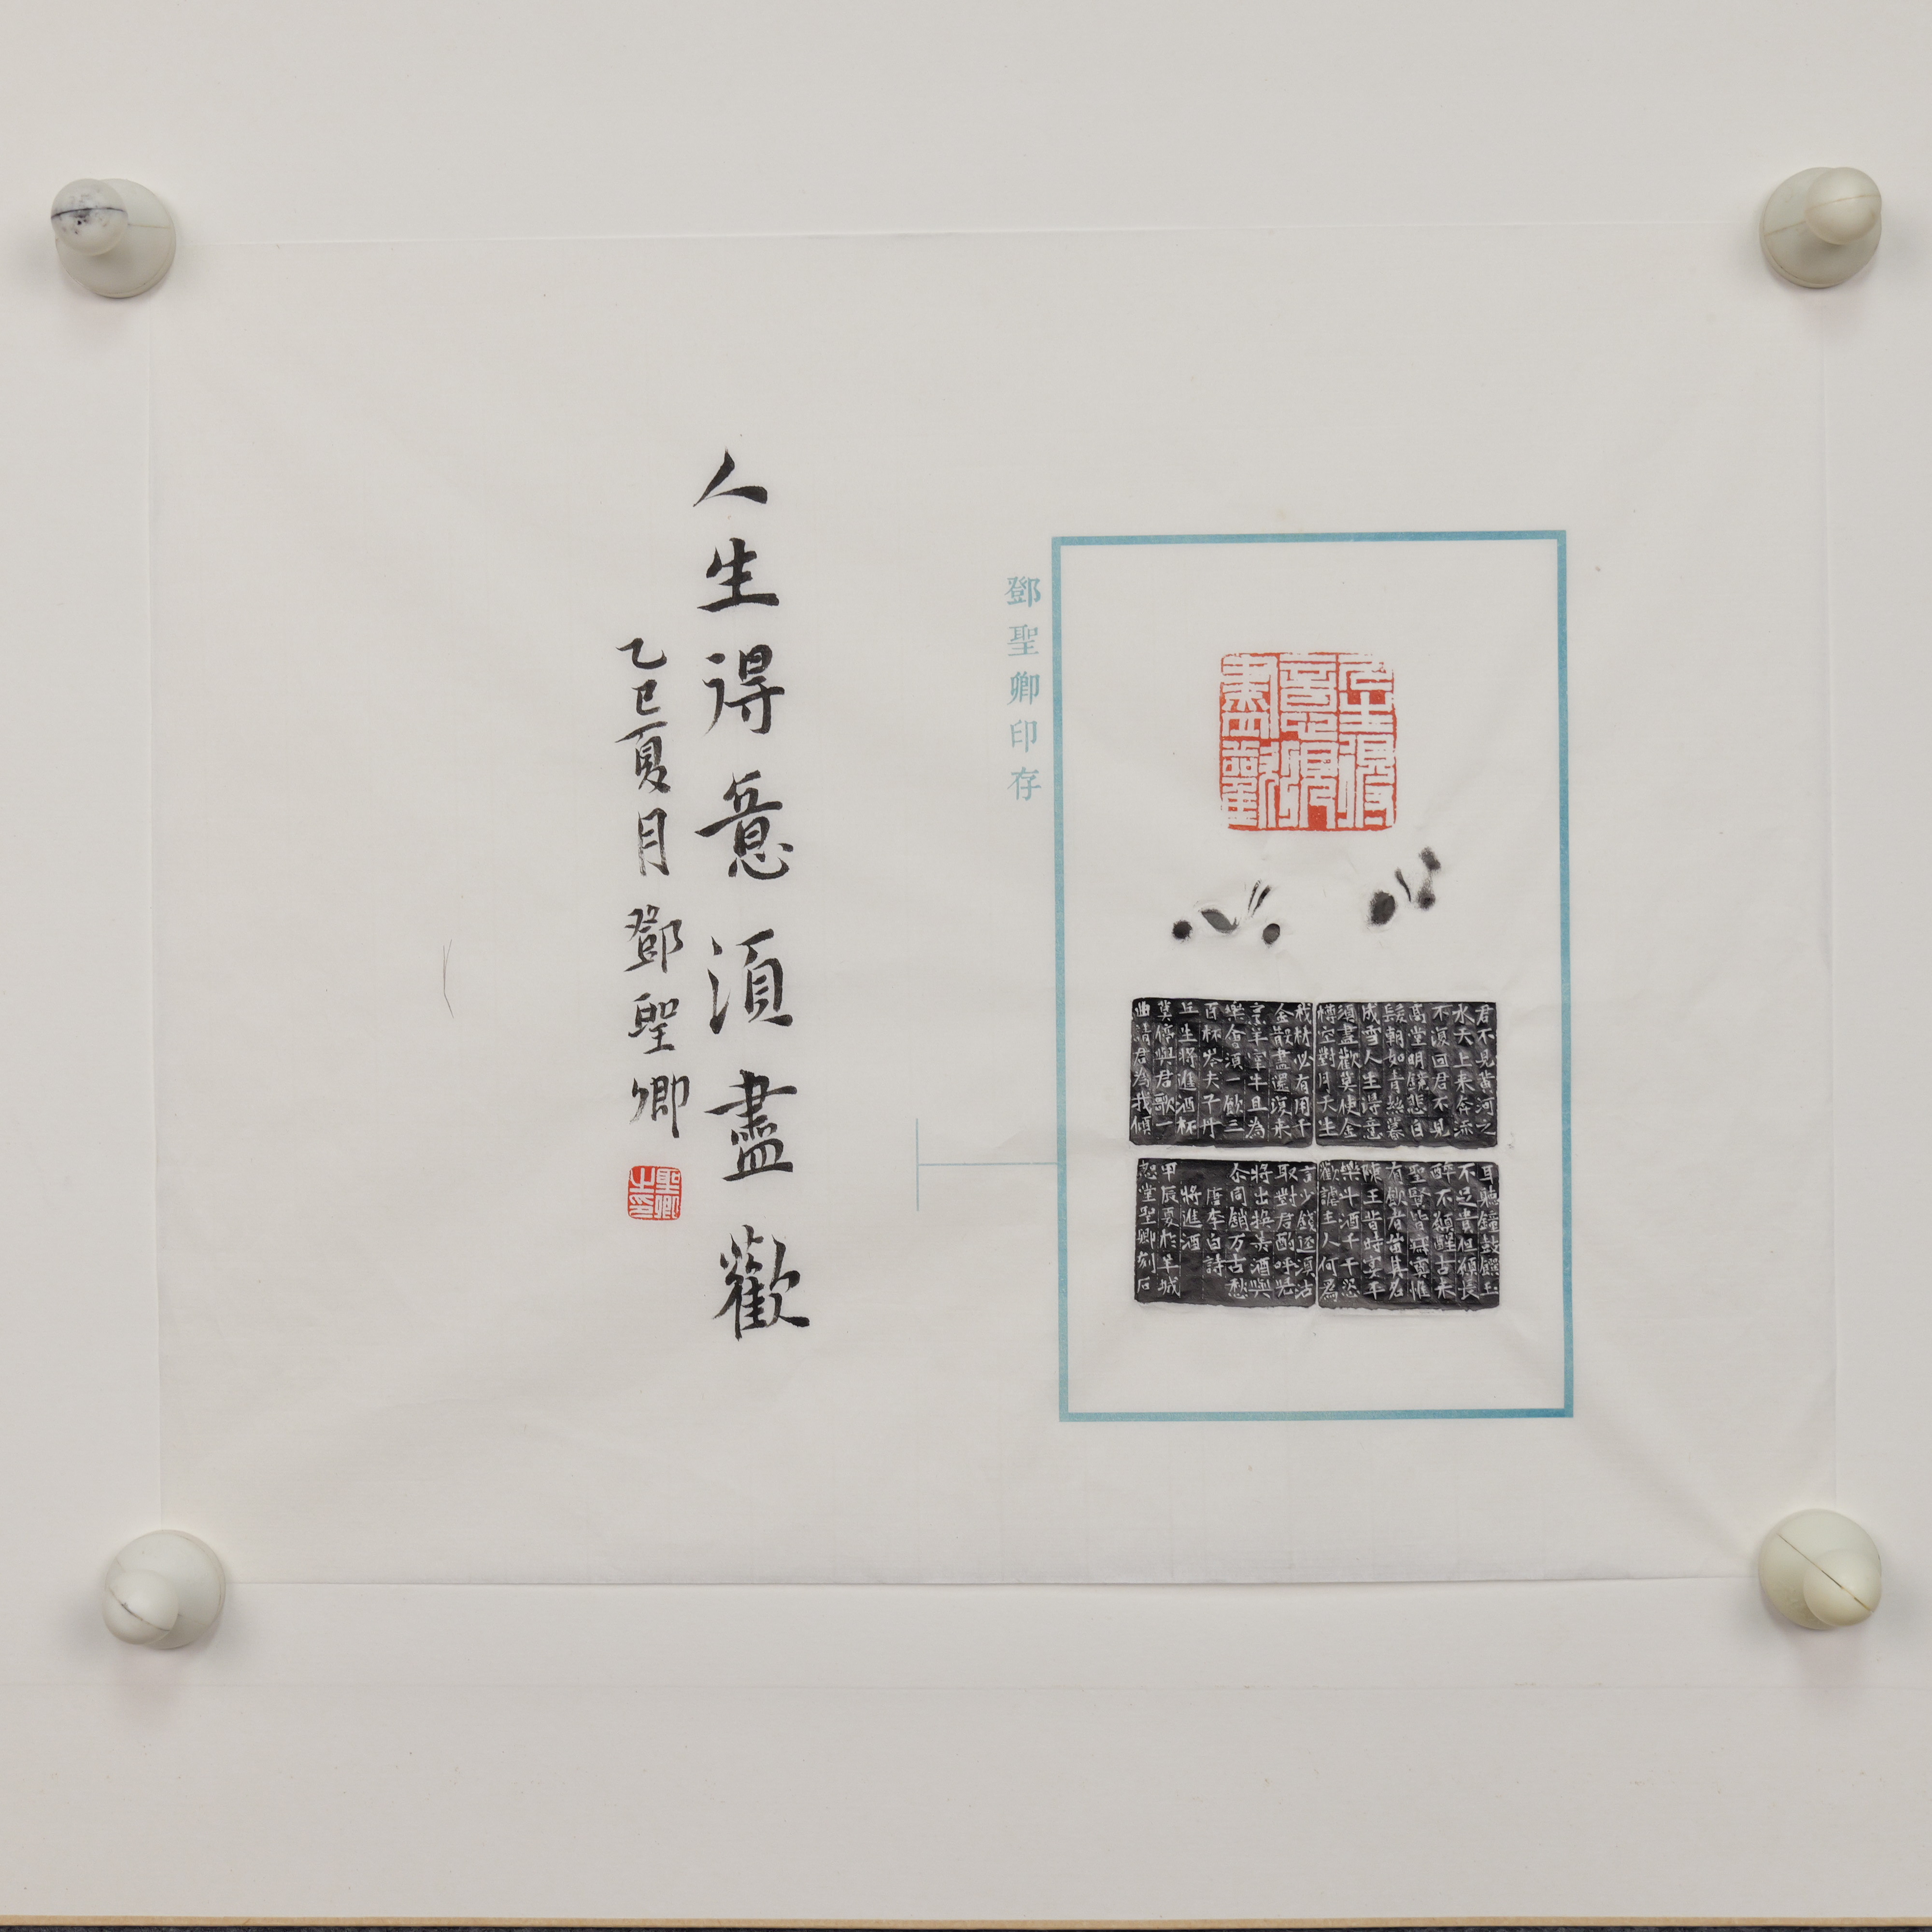 人生得
意須
盡歡
君不見黃河之
水天上来奔流
不復回君不見
高堂明鏡悲白
髮朝如青絲暮
成雪人生得意
須盡歡莫使金
樽空對月天生
我材必有用千
金散盡還復来
烹羊宰牛且為
樂會須一飲三
百杯岑夫子丹
丘生將進酒杯
莫停與君歌一
曲請君為我傾
耳聽鐘鼓饌玉
不足貴但願長
醉不願醒古来
聖賢皆寂寞惟
有飲者留其名
陳王昔時宴平
樂斗酒千千恣
歡謔主人何為
言少錢逕須沽
取對君酌呼児
將出換美酒與
尔同銷万古愁
唐李白詩
將進酒
甲辰夏於羊城
恕堂聖卿刻石
鄧聖卿印存
人生得意須盡歡
乙巳夏月鄧聖卿
聖卿
之印